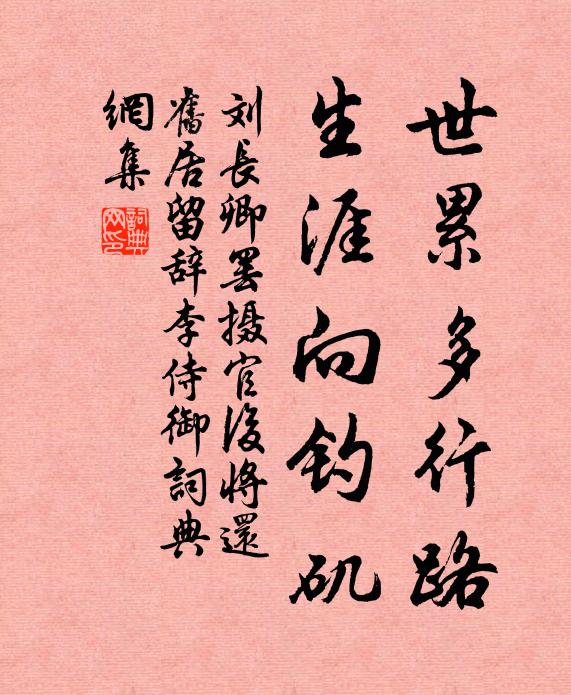 世累多行路
生涯向钓矶
刘长卿罢摄官後将還
舊居留辞李侍御詞典
網集
詞典網印